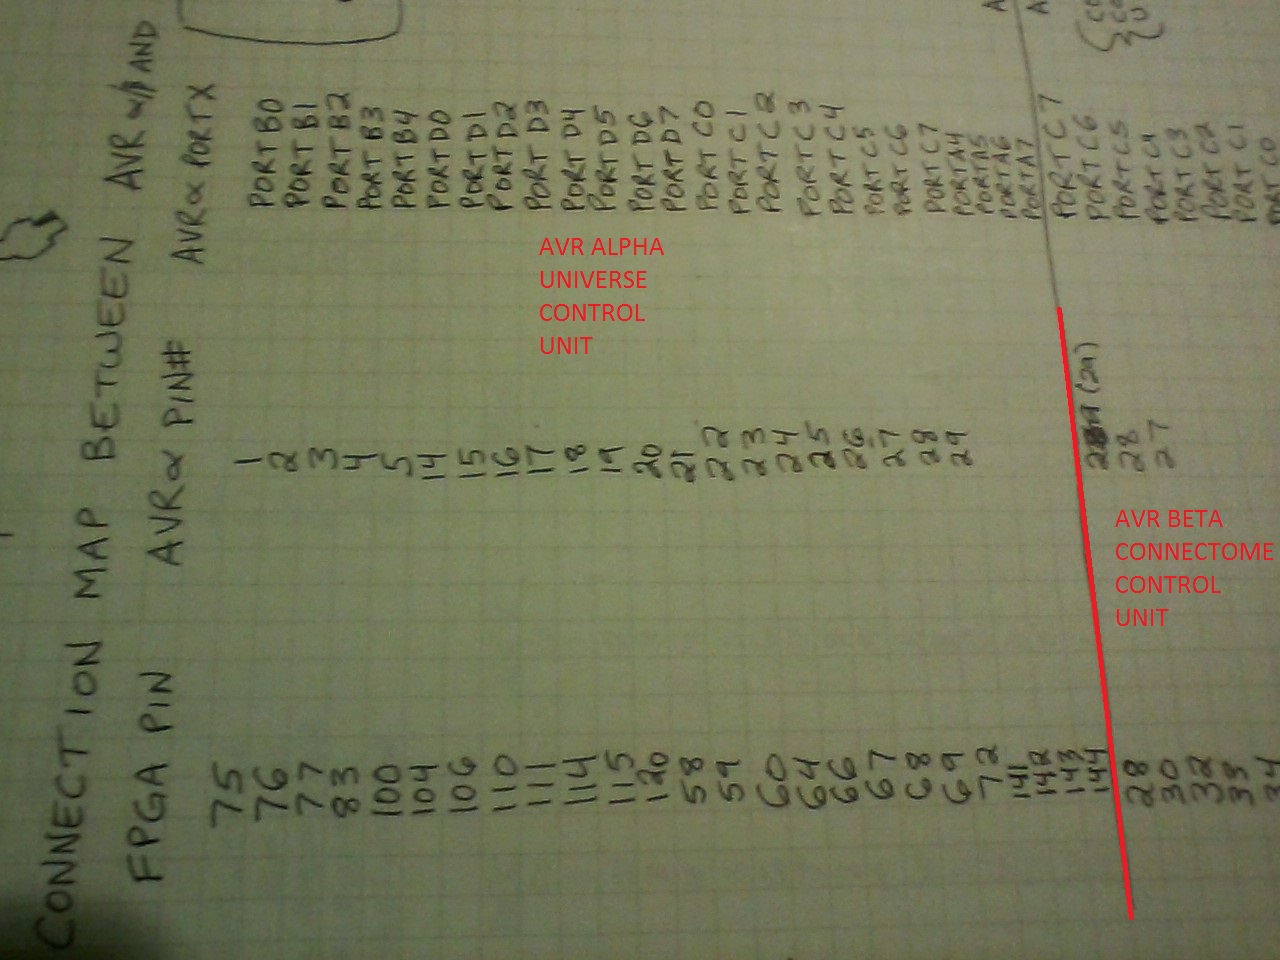 CONNECTION MAP BETWEEN AVR w/β AND
FPGA PIN AVRα PIN# AVRα PORTX
75 1 PORTB0
76 2 PORTB1
77 3 PORTB2
83 4 PORTB3
100 5 PORTB4
104 14 PORTD0
106 15 PORTD1
110 16 PORTD2
111 17 PORTD3
114 18 PORTD4
115 19 PORTD5
120 20 PORTD6
58 21 PORTD7
59 22 PORTC0
60 23 PORTC1
64 24 PORTC2
66 25 PORTC3
67 26 PORTC4
68 27 PORTC5
69 28 PORTC6
72 29 PORTC7
141 PORTA4
142 PORTA5
143 PORTA6
144 PORTA7
28 (29) PORTC7
30 28 PORTC6
32 27 PORTC5
33 PORTC4
34 PORTC3
PORTC2
PORTC1
PORTC0
AVR ALPHA
UNIVERSE
CONTROL
UNIT
AVR BETA
CONNECTOME
CONTROL
UNIT